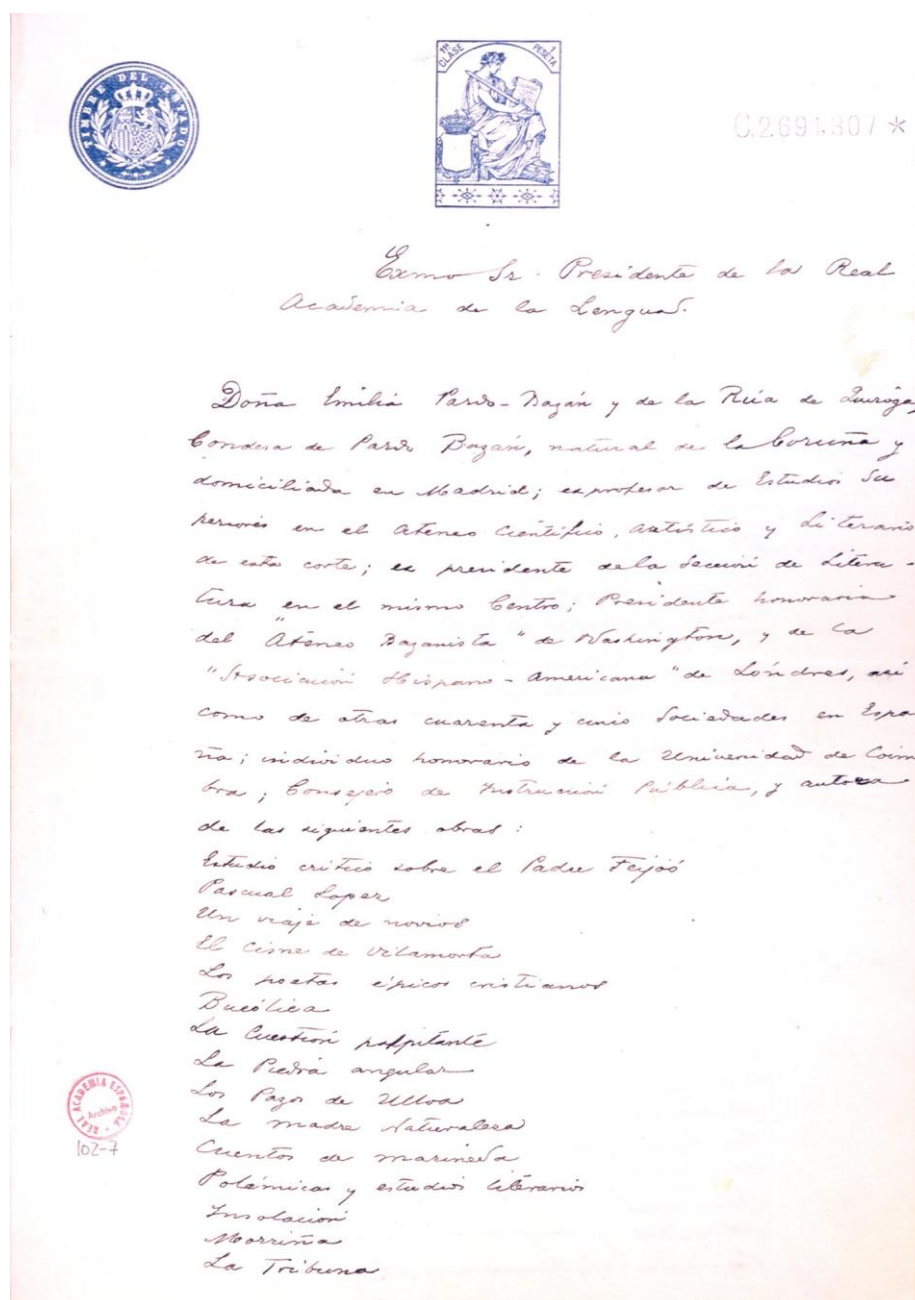 TIMBRE DEL ESTADO
11ª CLASE 1 PESETA
C.2.691.307 *
Exmo Sr. Presidente de la Real
Academia de la Lengua.
Doña Emilia Pardo-Bazán y de la Rúa de Quiroga,
Condesa de Pardo Bazán, natural de la Coruña y
domiciliada en Madrid; exprofesor de Estudios Su
periores en el Ateneo Científico, Artístico y Literario
de esta corte; ex presidente de la Sección de Litera-
tura en el mismo Centro; Presidente honoraria
del "Ateneo Bazanista" de Washington, y de la
"Asociación Hispano-Americana" de Lóndres, así
como de otras cuarenta y cinco Sociedades en Espa
ña; individuo honorario de la Universidad de Coim
bra; Consejero de Instrucción Pública, y autora
de las siguientes obras:
Estudio crítico sobre el Padre Feijoó
Pascual Lopez
Un viaje de novios
El Cisne de Vilamorta
Los poetas épicos cristianos
Bucólica
La Cuestión palpitante
La Piedra angular
Los Pazos de Ulloa
La madre Naturaleza
Cuentos de marineda
Polémicas y estudios literarios
Insolación
Morriña
La Tribuna
REAL ACADEMIA ESPAÑOLA
Archivo
102-7